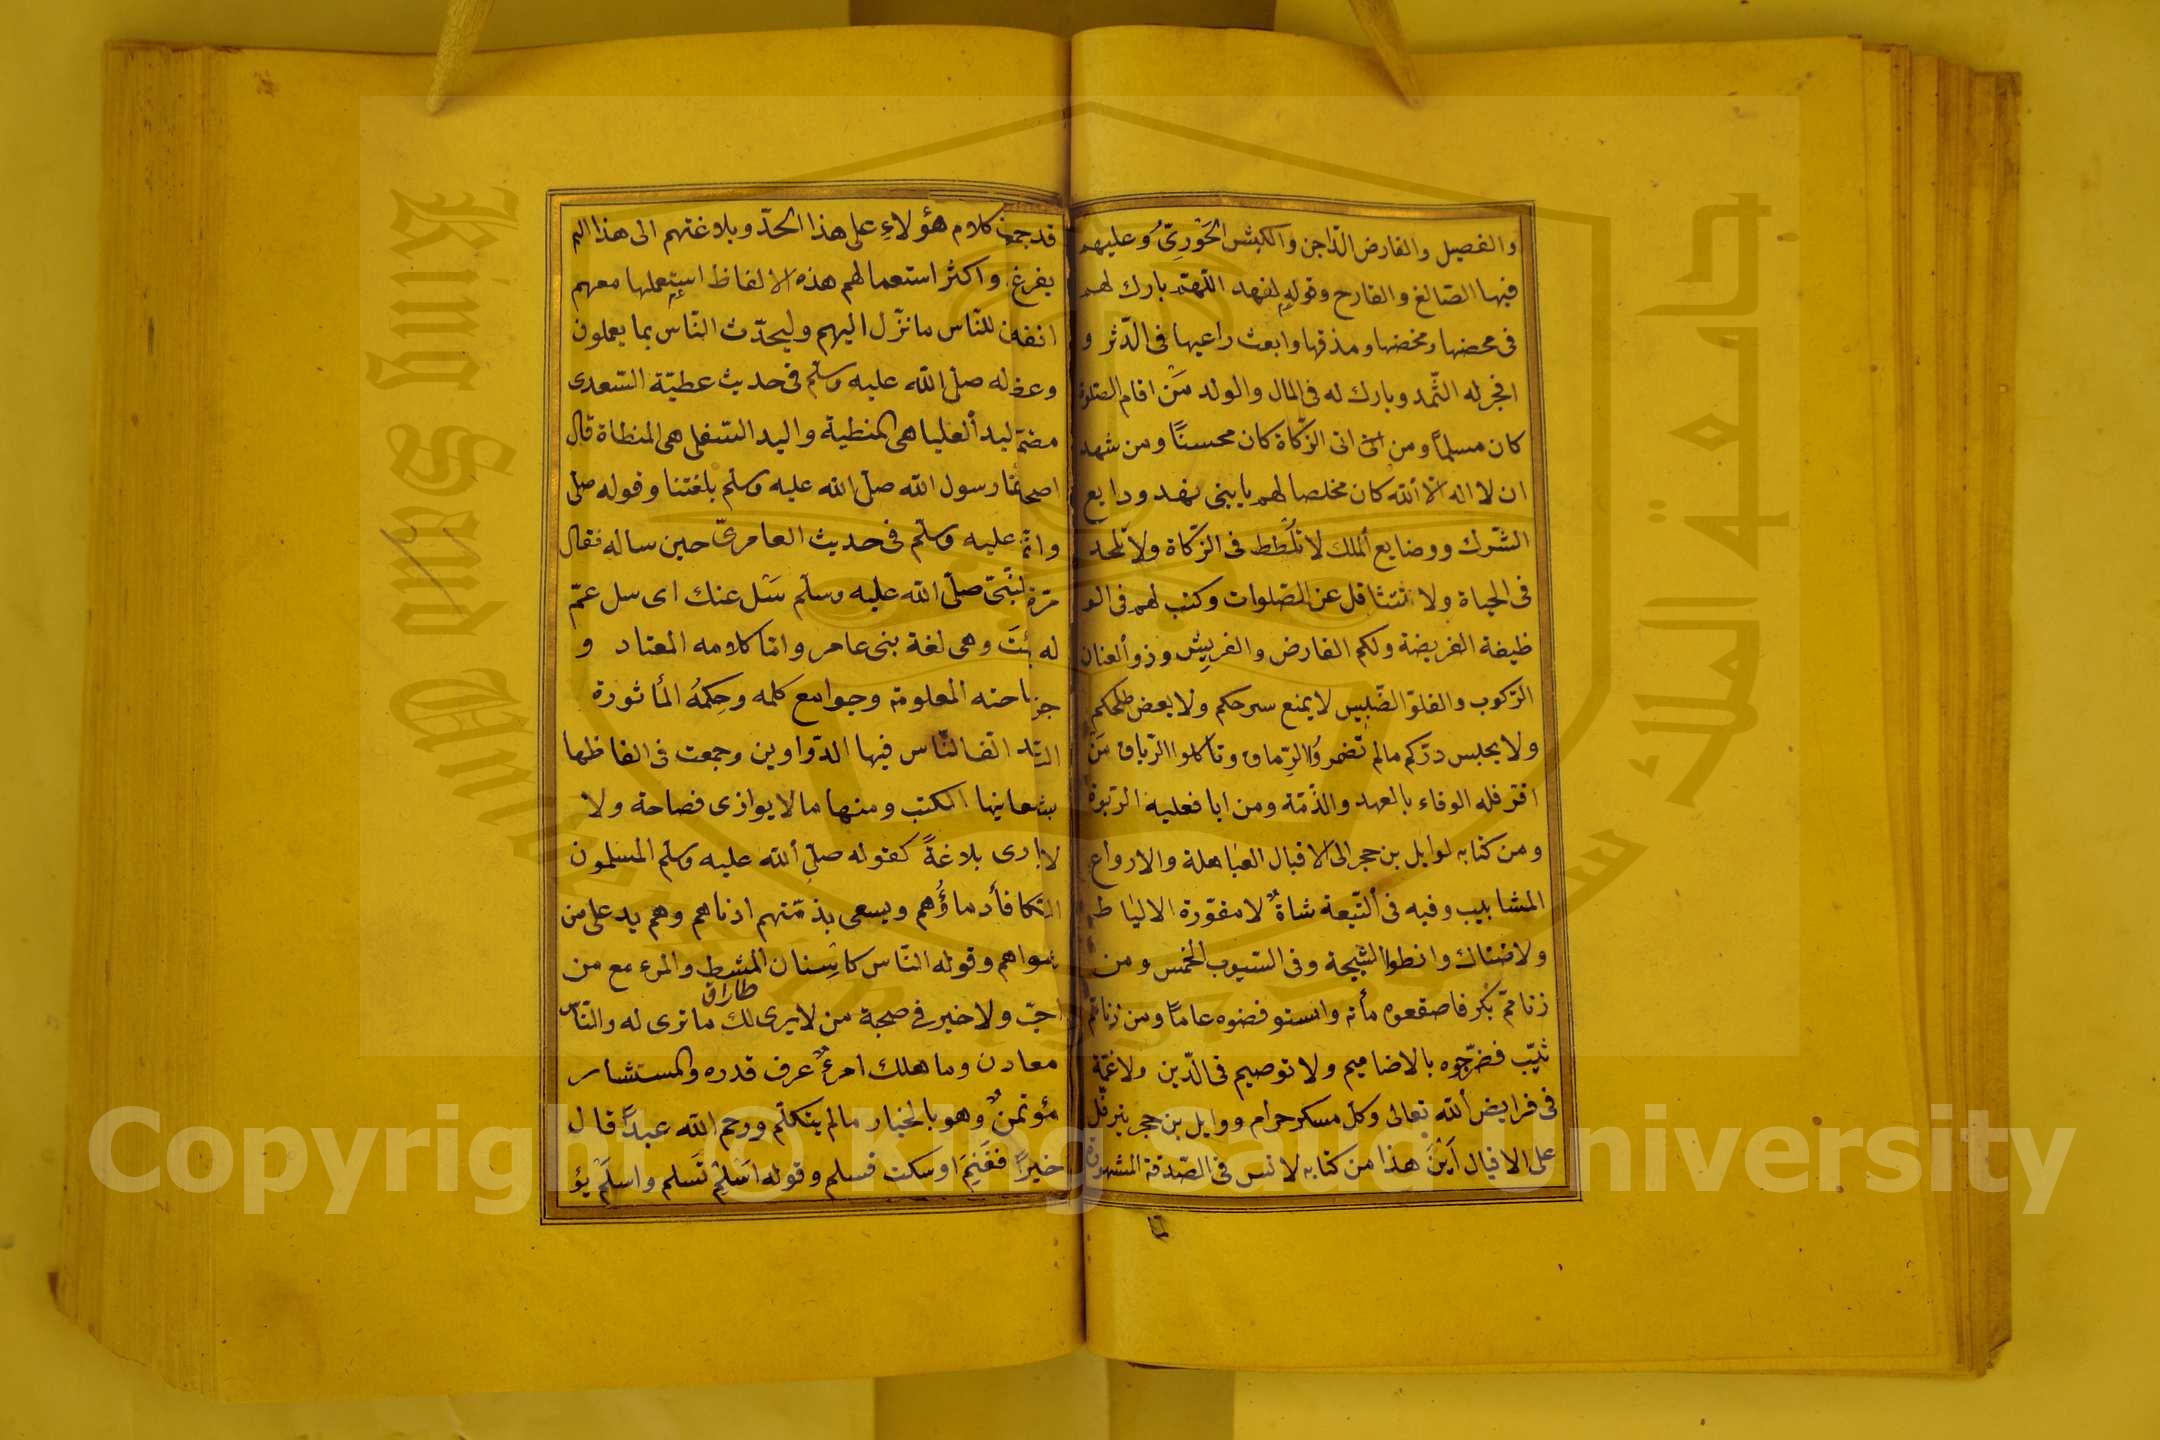 والفصيل والفارض الداجن والكبش الحَوْرِيُّ وعليهم
فيها الصّالغ والقارح وقوله لفهد اللّهمّ بارك لهم
فى محضها ومخضها ومذقها وابعث راعيها فى الدّثر و
افجر له الثّمد وبارك له فى المال والولد مَنْ اقام الصّلوة
كان مسلمًا ومن اتى الزّكاة كان محسنًا ومن شهد
ان لا اله الّا الله كان مخلصا لهم يا بنى نهد ودايع
الشّرك ووضايع الملك لا تُلْطِط فى الزّكاة ولا تُلْحد
فى الحياة ولا تتثاقل عن الصّلوات وكتب لهم فى الو
ظيفة الفريضة ولكم الفارض والفريش وذو العنان
الرّكوب والفلوّ الضّبيس لا يمنع سرحكم ولا يعض طلحكم
ولا يحبس درّكم مالم تضمروا الرّماق وتأكلوا الرّباق مَنْ
اقر فله الوفاء بالعهد والذّمّة ومن ابا فعليه الرّبوة
ومن كتابه لوايل بن حجر الى الاقيال العباهلة والارواع
المشابيب وفيه فى التّيعة شاةٌ لا مقوّرة الالياط
ولا ضناك وانطوا الثّبجة وفى السّيوب الخمس ومن
زنا ممّ بكر فاصقعوه مأنه واستوفضوه عامًا ومن زنا ممّ
ثيّب فضرّجوه بالاضاميم ولا توصيم فى الدّين ولا غمّة
فى فرايض الله تعالى وكل مسكر حرام ووايل بن حجر يترفّل
على الاقيال اَيْنَ هذا من كتابه لانس فى الصّدقة المشهورة
كلام هؤلاءِ على هذا الحدّ وبلاغتهم الى هذا
واكثر استعمالهم هذه الالفاظ استعملها معهم
للنّاس ما نزّل اليهم وليحدّث النّاس بما يعلمون
صلى الله عليه وسلّم فى حديث عطيّة السّعدى
العليا هى المنطية واليد السّفلى هى المنطاة قال
رسول الله صلى الله عليه وسلم بلغتنا وقوله صلى
عليه وسلّم فى حديث العامرىّ حين ساله فقال
صلّى الله عليه وسلّم سَل عنك اى سل عمّ
وهى لغة بنى عامر وامّا كلامه المعتاد و
المعلومة وجوامع كلمه وحِكَمُهُ المأثورة
النّاس فيها الدّواوين وجمعت فى الفاظها
الكتب ومنها ما لا يوازى فصاحة ولا
بلاغةً كقوله صلى الله عليه وسلم المسلمون
ويسعى بذمّتهم ادناهم وهم يد على من
سواهم وقوله النّاس كاسنان المشط والمرء مع من
احبّ ولا خير فى صحبة من لا يرى لك ما ترى له والنّا
معادن وما هلك امرءٌ عرف قدره والمستشار
مؤتمنٌ وهو بالخيار مالم يتكلّم ورحم الله عبدًا قال
خيرًا فَغَنِمَ او سكت فسلم وقوله اَسْلِمْ تَسلم واسلم يؤ
Copyright © King Saud University
King Saud University
جامعة الملك سعود